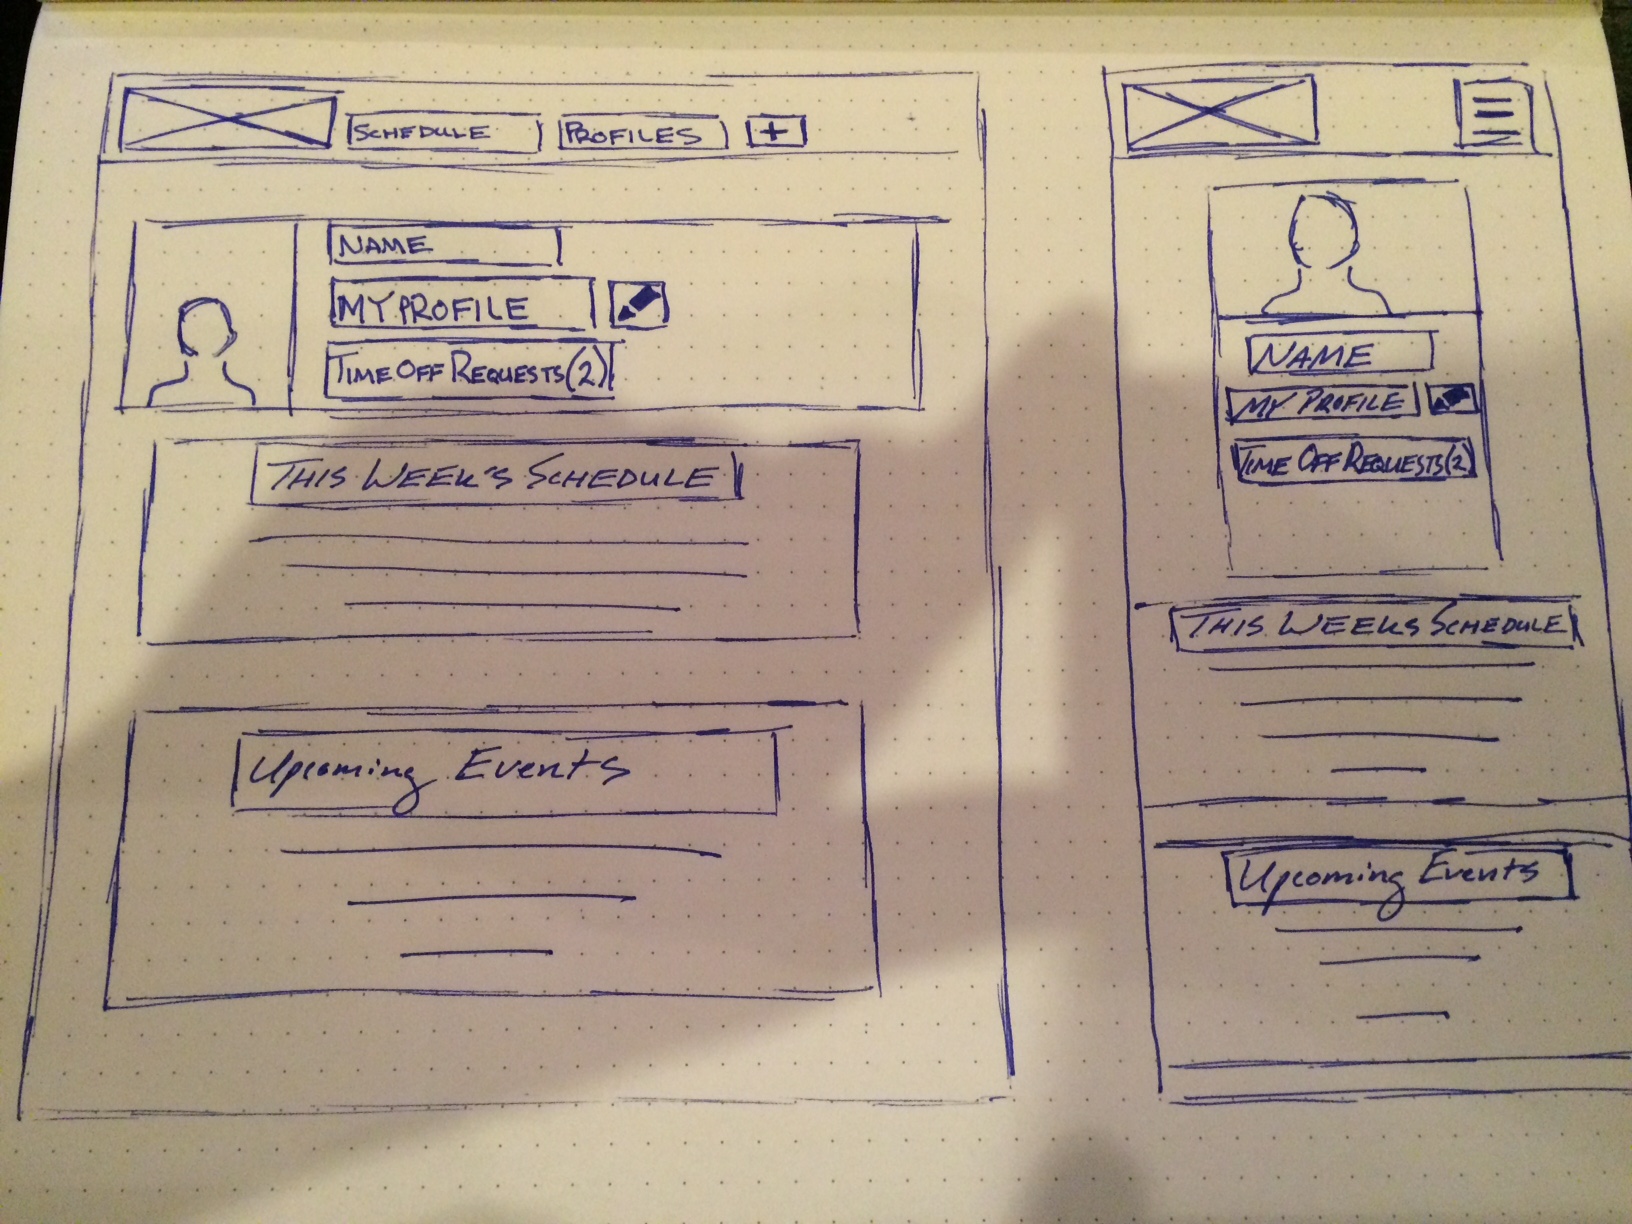 SCHEDULE PROFILES +
NAME
MY PROFILE
TIME OFF REQUESTS (2)
THIS WEEK'S SCHEDULE
Upcoming Events
NAME
MY PROFILE
TIME OFF REQUESTS (2)
THIS WEEKS SCHEDULE
Upcoming Events